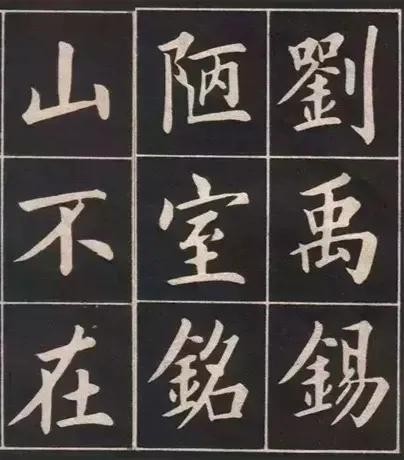 劉禹錫
陋室銘
山不在